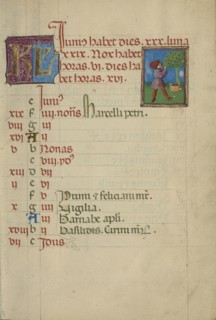 KL Iunius habet dies. xxx. luna
xxix. Nox habet
horas. vi. dies ha
bet horas. xvi.
e Iunius
xix f iiii. noñs Marcelli petri.
viii g iii
xvi A ii
v b Nonas
c viii. id9
xiii d vii
ii e vi
f v Primi & feliciani mr̄.
x g iiii Vigilia.
A iii Barnabe apłi.
xviii b ii Basilidis. Cirini mr̄.
vii c Idus